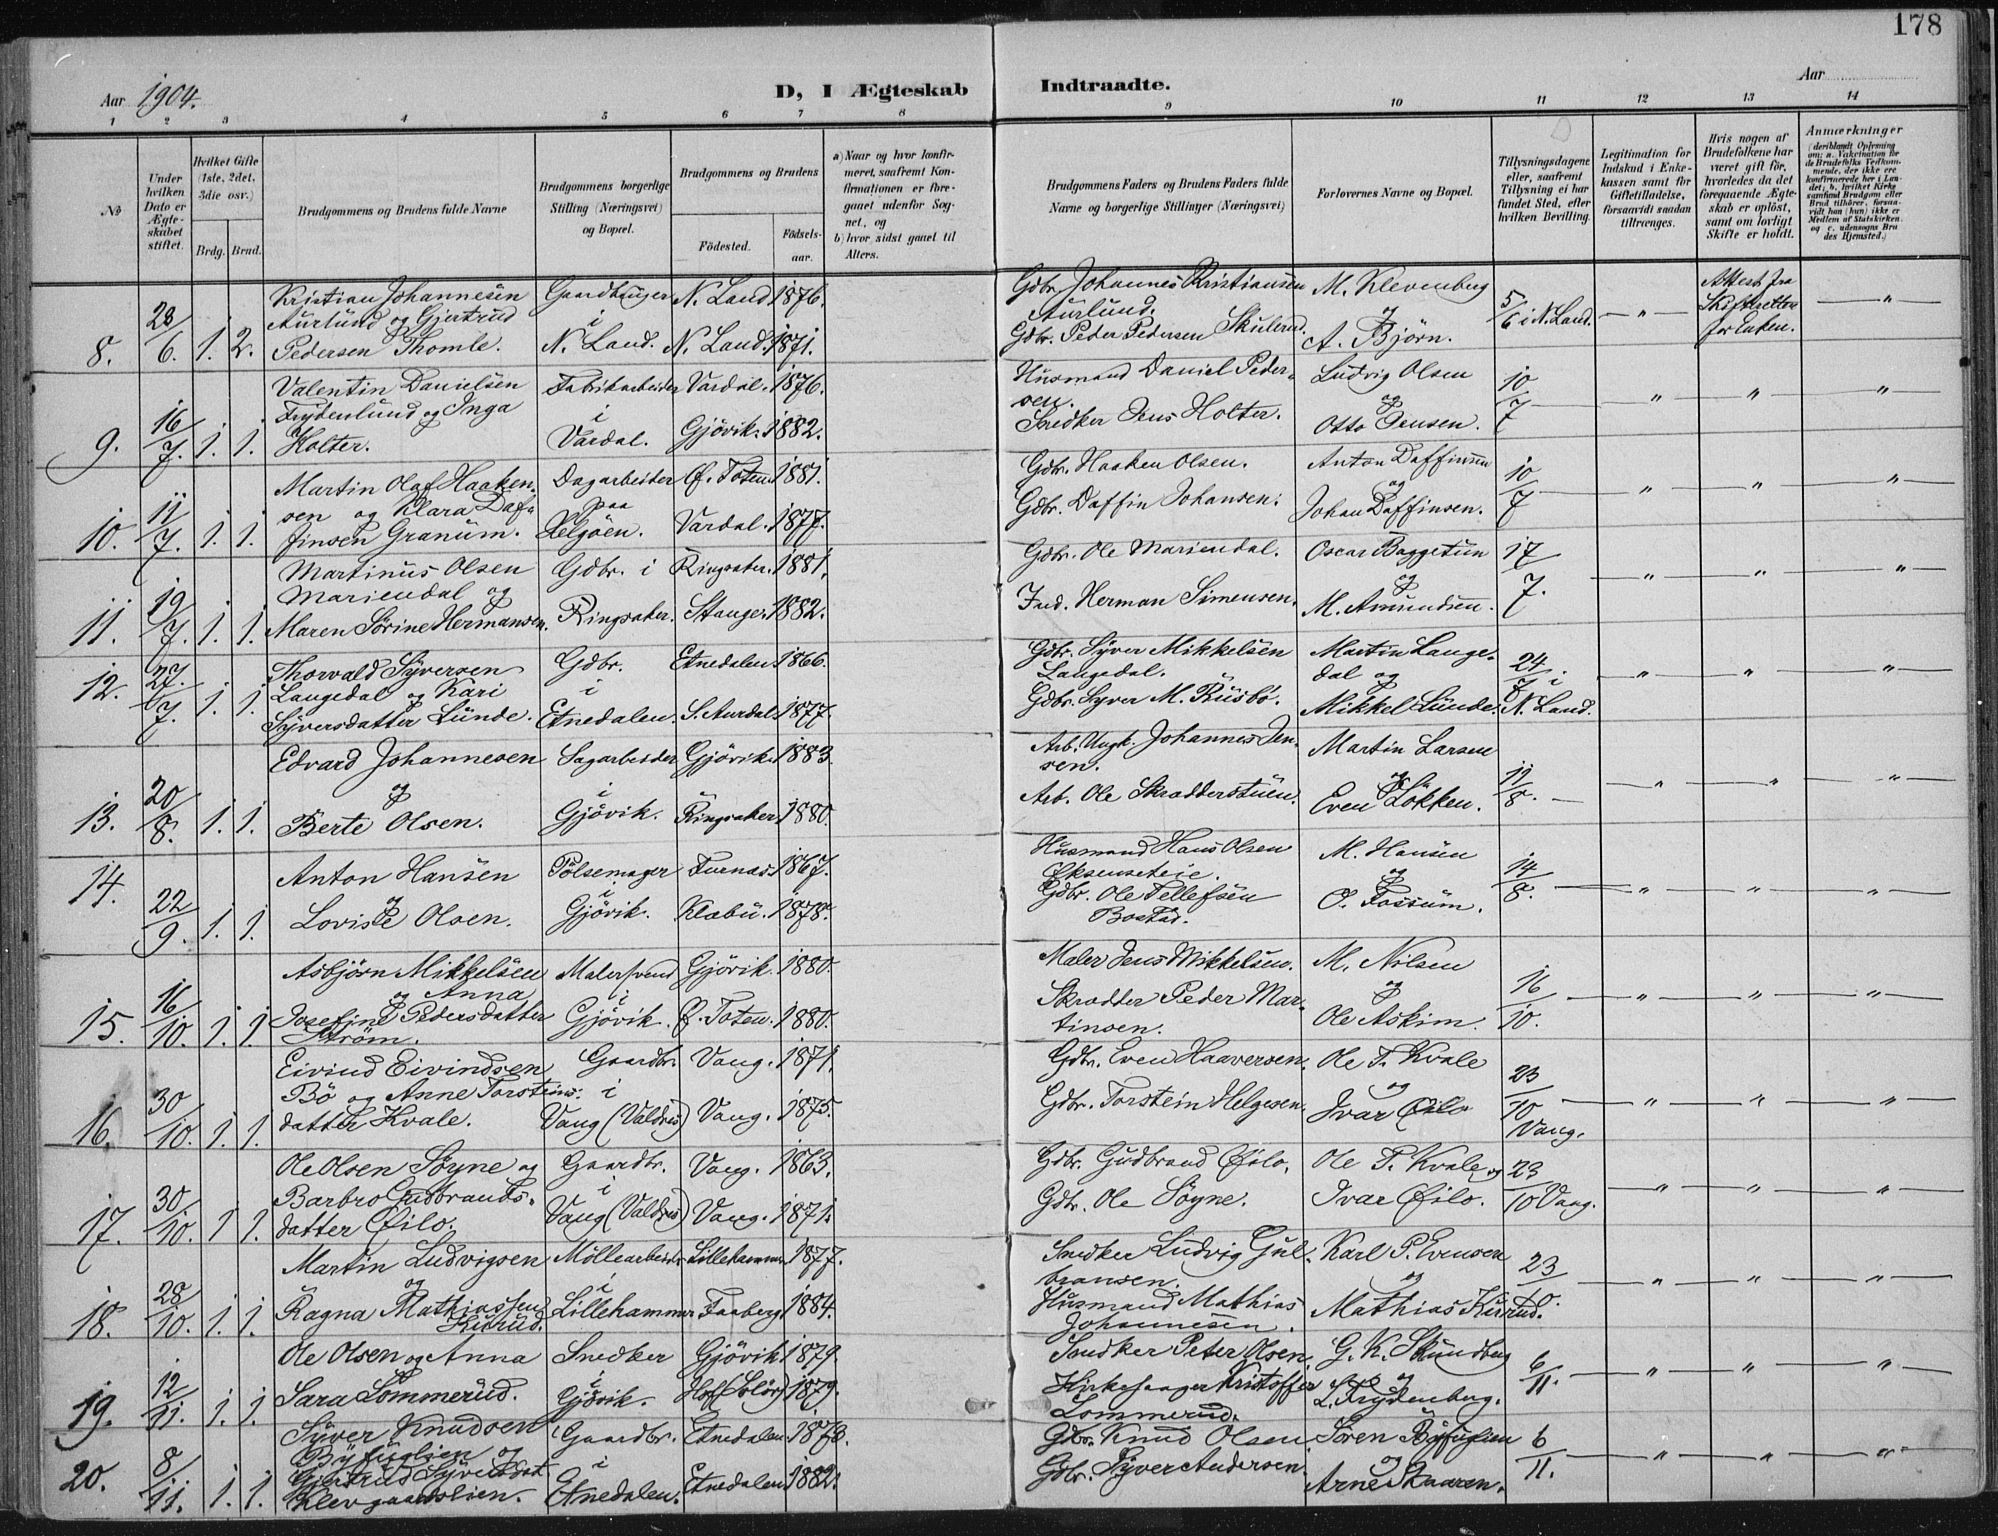 178
Aar 1904.
D, I Ægteskab Indtraadte.
Aar
1 2 3 4 5 6 7 8 9 10 11 12 13 14
№
Under hvilken Dato er Ægteskabet stiftet.
Hvilket Gifte (1ste, 2det, 3die osv.)
Brdg. Brud.
Brudgommens og Brudens fulde Navne
Brudgommens borgerlige Stilling (Næringsvei) og Bopæl.
Brudgommens og Brudens
Födested.
Födselsaar.
a) Naar og hvor konfirmeret, saafremt Konfirmationen er foregaaet udenfor Sognet, og
b) hvor sidst gaaet til Alters.
Brudgommens Faders og Brudens Faders fulde Navne og borgerlige Stillinger (Næringsvei)
Forlovernes Navne og Bopæl.
Tillysningsdagene eller, saafremt Tillysning ei har fundet Sted, efter hvilken Bevilling.
Legitimation for Indskud i Enkekassen samt for Giftetilladelse, forsaavidt saadan tiltrænges.
Hvis nogen af Brudefolkene har været gift før, hvorledes da det foregaaende Ægteskab er oplöst, samt om lovligt Skifte er holdt.
Anmærkninger
(deriblandt Oplysning om: a. Vakcination for de Brudefolks Vedkommende, der ikke ere konfirmerede her i Landet; b. hvilket Kirkesamfund Brudgom eller Brud tilhører, forsaavidt han (hun) ikke er Medlem af Statskirken, og c. udensogns Brudes Hjemsted.)
8. 28/6. 1. 2. Kristian Johannesen Aurlund og Gjertrud Pedersen Thomle. Gaardbruger i N. Land. N. Land 1876. N. Land. 1871. Gdbr. Johannes Kristiansen Aurlund. Gdbr. Peder Pedersen Skulerud. M. Klevenberg og A. Björn. 5/6 i N. Land. — " — Attest fra Skifteretten forlaten. — " —
9. 16/7. 1. 1. Valentin Danielsen Frydenlund og Inga Holter. Fabrikarbeider i Vardal. Vardal. 1876. Gjövik. 1882. Husmand Daniel Pedersen. Snedker Jens Holter. Ludvig Olsen og Otto Jensen. 10/7 — " — " — "
10. 11/7. 1. 1. Martin Olaf Haakensen og Klara Daffinsen Granum. Dagarbeider paa Helgöen. Ø. Toten 1881. Vardal. 1877. Gdbr. Haaken Olsen. Gdbr. Daffin Johansen. Anton Daffinsen og Johan Daffinsen. 10/7 — " — " — "
11. 19/7. 1. 1. Martinus Olsen Mariendal og Maren Sörine Hermansen. Gdbr. i Ringsaker. Ringsaker. 1881. Stange. 1882. Gdbr. Ole Mariendal. Ind. Herman Simensen. Oscar Baggetun og M. Amundsen. 17/7. — " — " — "
12. 27/7. 1. 1. Thorvald Syversen Langedal og Kari Syversdatter Lunde. Gdbr. i Etnedalen. Etnedalen 1866. S. Aurdal 1877. Gdbr. Syver Mikkelsen Langedal. Gdbr. Syver M. Rusbö. Martin Langedal og Mikkel Lunde. 24/7 i N. Land. — " — " — "
13. 20/8. 1. 1. Edvard Johannesen og Berte Olsen. Sagarbeider i Gjövik. Gjövik. 1883. Ringsaker 1880. Arb. Ungk. Johannes Jensen. Arb. Ole Skrædderstuen. Martin Larsen og Even Lökken. 19/8. — " — " — "
14. 22/9. 1. 1. Anton Hansen og Lovise Olsen. Pölsemager i Gjövik. Furnæs. 1867. Klæbu. 1878. Husmand Hans Olsen Eksenseteie. Gdbr. Ole Tellefsen Bostad. M. Hansen og O. Fossum. 14/8. — " — " — "
15. 16/10. 1. 1. Asbjörn Mikkelsen og Anna Josefine Pedersdatter Ström. Malersvend i Gjövik. Gjövik. 1880. Ø. Toten. 1880. Maler Jens Mikkelsen. Skrædder Peder Martinsen. M. Nilsen og Ole Askim. 16/10. — " — " — "
16. 30/10. 1. 1. Eivind Eivindsen Bö og Anne Torsteinsdatter Kvale. Gaardbr. i Vang (Valdres) Vang. 1871. Vang. 1875. Gdbr. Even Haaversen. Gdbr. Torstein Helgesen. Ole T. Kvale og Ivar Øilo 23/10 Vang. — " — " — "
17. 30/10. 1 1. Ole Olsen Söyne og Barbro Gudbrandsdatter Øilo. Gaardbr. i Vang (Valdres) Vang. 1863. Vang. 1871. Gdbr. Gudbrand Øilo. Gdbr. Ole Söyne. Ole T. Kvale og Ivar Øilo. 23/10 Vang. — " — " — "
18. 28/10. 1. 1. Martin Ludvigsen og Ragna Mathiassen Kurud. Möllearbeider i Lillehammer Lillehammer 1877. Faaberg 1884. Snedker Ludvig Gulbransen. Husmand Mathias Johannesen. Karl P. Evensen og Mathias Kurud. 23/10. — " — " — "
19. 12/11. 1. 1. Ole Olsen og Anna Sara Lommerud. Snedker i Gjövik. Gjövik 1879. Hof (Solör) 1879. Snedker Peter Olsen. Kirkesanger Kristoffer Lommerud. G. K. Skundberg og L. Frydenberg. 6/11. — " — " — "
20. 8/11. 1. 1. Syver Knudsen Byfuglien og Gjertrud Syversdat. Klevgaardslien. Gaardbr. i Etnedalen. Etnedalen 1878. Etnedalen 1882. Gdbr. Knud Olsen Gdbr. Syver Andersen. Sören Byfuglien og Arne Skaaren. 6/11. — " — " — "